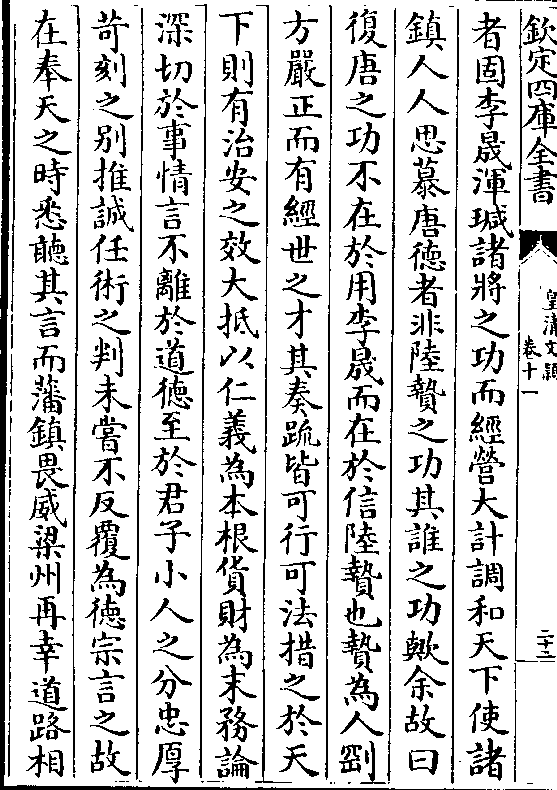 欽定四庫全書
皇清文穎
卷十一
二十二
者固李晟渾瑊諸將之功而經營大計調和天下使諸
鎮人人思慕唐德者非陸贄之功其誰之功歟余故曰
復唐之功不在於用李晟而在於信陸贄也贄為人剛
方嚴正而有經世之才其奏䟽皆可行可法措之於天
下則有治安之效大抵以仁義為本根貨財為末務論
深切於事情言不離於道德至於君子小人之分忠厚
苛刻之别推誠任術之判未嘗不反覆為德宗言之故
在奉天之時悉聽其言而藩鎮畏威梁州再幸道路相